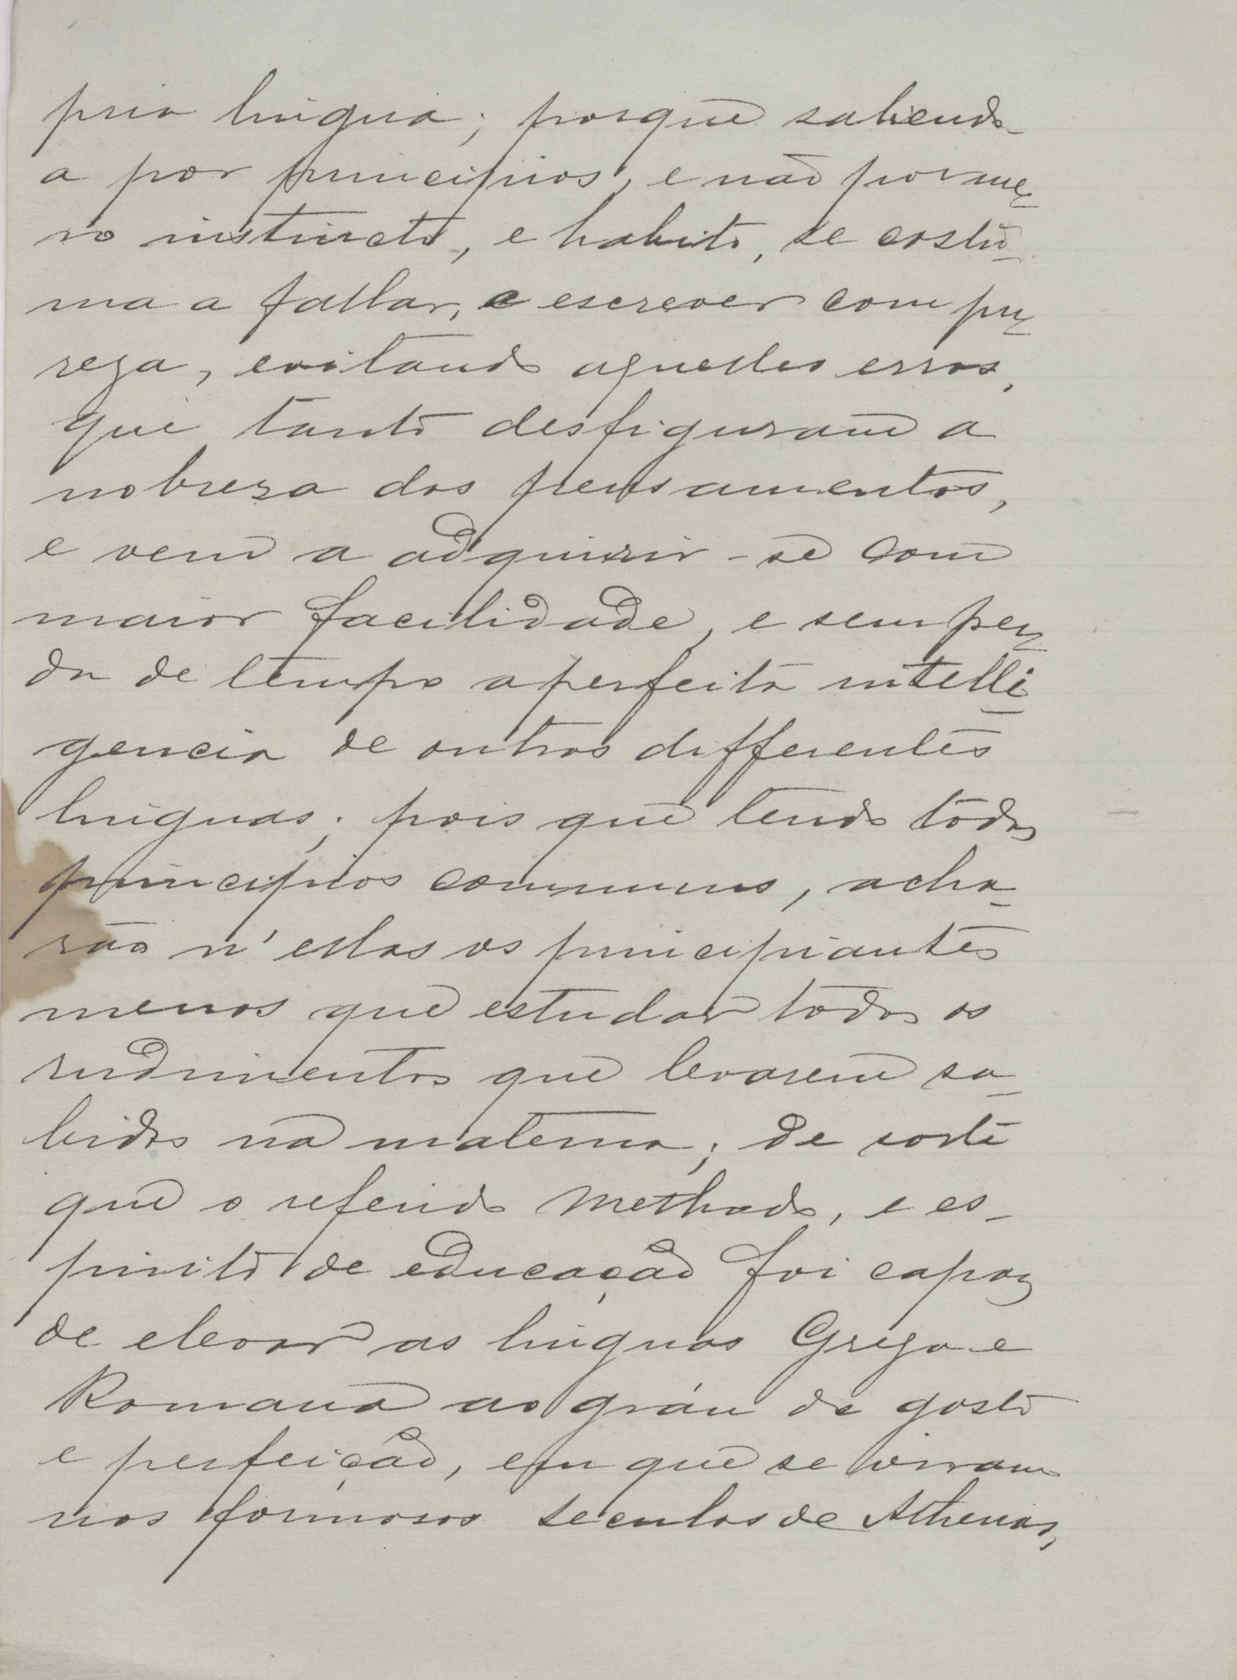 pria lingua; porque sabendo-
a por principios, e não por me-
ro instincto, e habito, se costu-
ma a fallar, e escrever com pu-
reza, evitando aquelles erros,
que tanto desfiguram a
nobreza dos pensamentos,
e vem a adquirir-se com
maior facilidade, e sem per-
da de tempo a perfeita intelli-
gencia de outras differentes
linguas; pois que tendo todas
principios communs, acha-
rão n'ellas os principiantes
menos que estudar todos os
rudimentos que levarem sa-
bidos na materna; de sorte
que o referido Methodo, e es-
pirito de educação foi capaz
de elevar as linguas Grega e
Romana ao gráu de gosto
e perfeição, em que se viram
nos formosos seculos de Athenas,